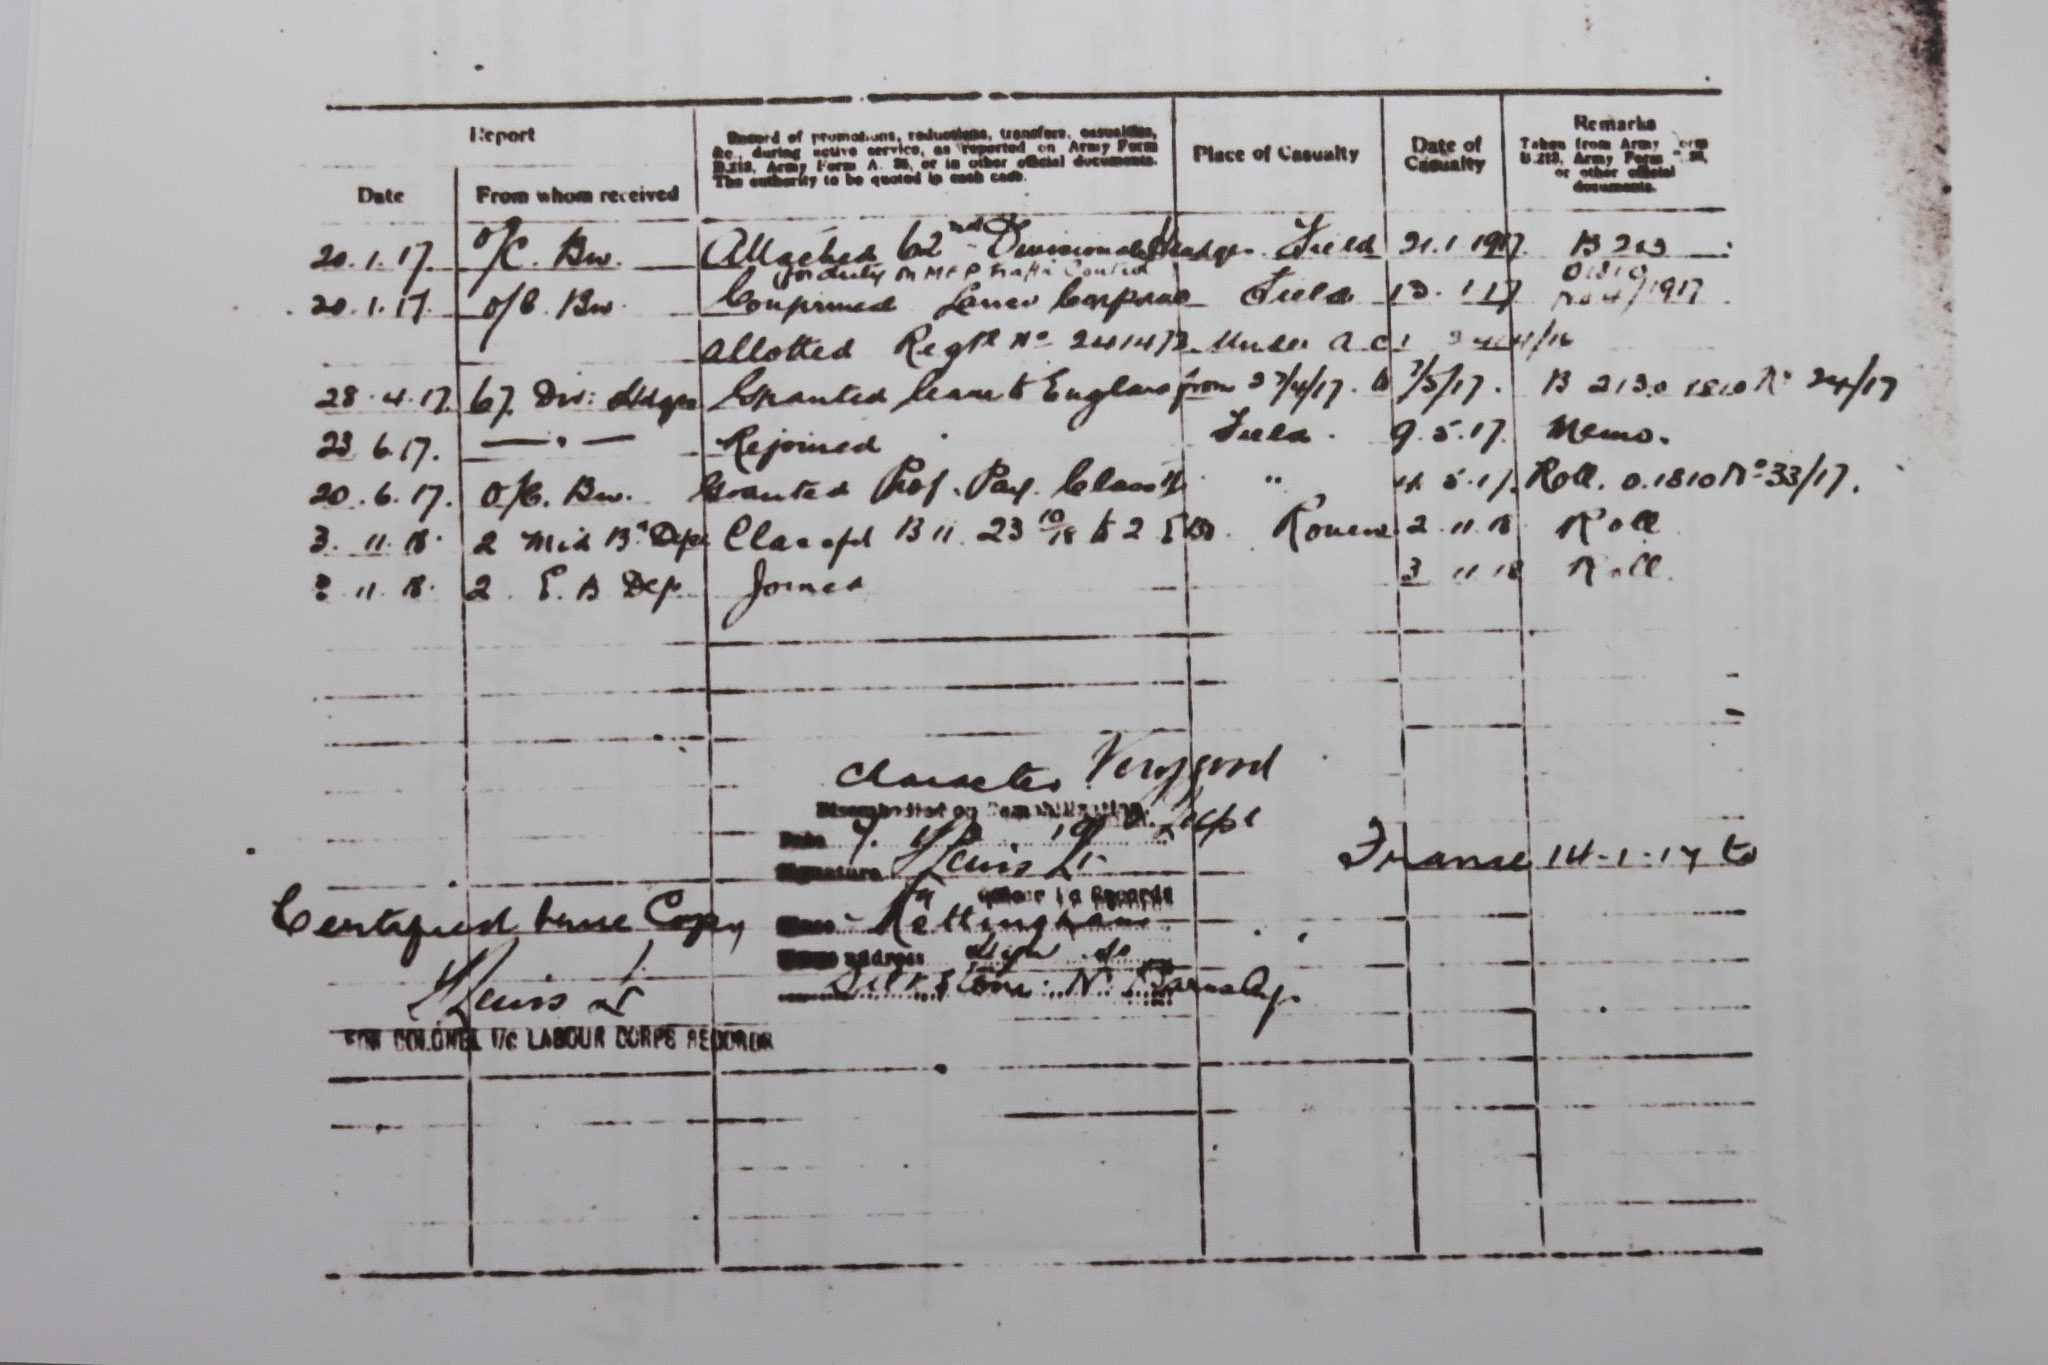 Report
Record of promotions, reductions, transfers, casualties,
&c., during active service, as reported on Army Form
B.213, Army Form A. 36, or in other official documents.
The authority to be quoted in each case.
Place of Casualty
Date of
Casualty
Remarks
Taken from Army Form
B.213, Army Form A. 36,
or other official
documents.
Date
From whom received
20.1.17. O/C. Bn. Attached 62nd Divisional Hdqrs Field 21.1.1917. B 213
for duty on M F P Traffic Control
20.1.17. O/C. Bn. Confirmed Lance Corporal Field 13.1.17 1917
Allotted Regtl No 241473 Under A C I /16
28.4.17. 62. Div: Hdqrs Granted leave to England from 27/4/17. to 7/5/17. B 213 0 1810 No 24/17
23.6.17. Rejoined Field. 9.5.17. Memo.
20.6.17. O/C. Bn. Granted Prof. Pay. Class " 5.17. Roll. 0.1810 No 33/17.
3.11.18. 2 Mid Bn Dep Classfd B 11. 23 10/18 to 2 E B D. Rouen 2.11.18 Roll
11.18. 2. E. B Dep Joined 3 11 18 Roll.
Character Very good
Disembodied on Demobilization.
Date
Signature Lewis Lt
Officer i/c Records
Place Nottingham
France 14-1-17 to
Certified true Copy
Home address
Silkstone. Nr Barnsley.
Lewis Lt
FOR COLONEL I/c LABOUR CORPS RECORDS